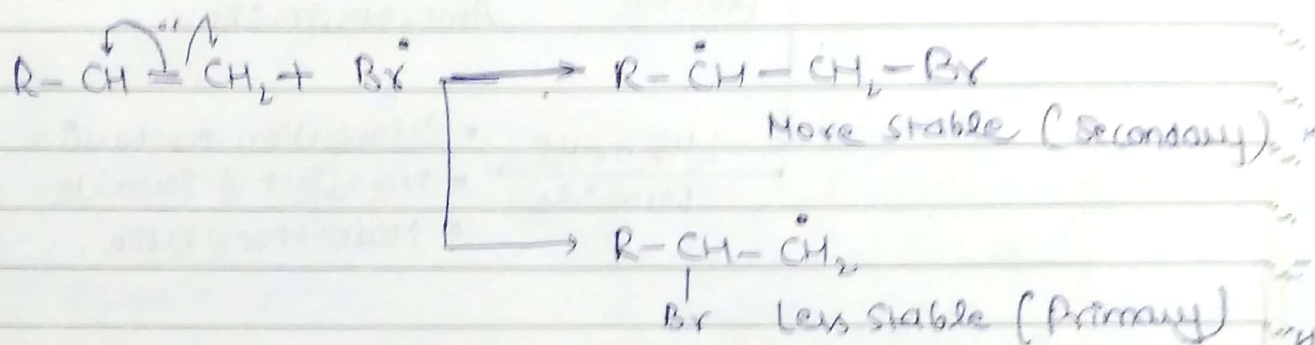 R-CH=CH₂ + Br• → R-ĊH-CH₂-Br
More stable (Secondary)
→ R-CH-ĊH₂
Br Less stable (Primary)